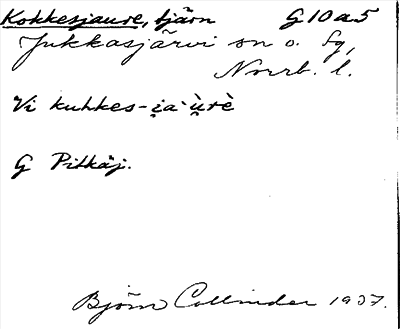 Kokkesjaure, tjärn G10a5
Jukkasjärvi sn o. fg,
Norrb. l.
Vi kuhkes-i̯a`ù̯rè
G Pitkäj.
Björn Collinder 1937.